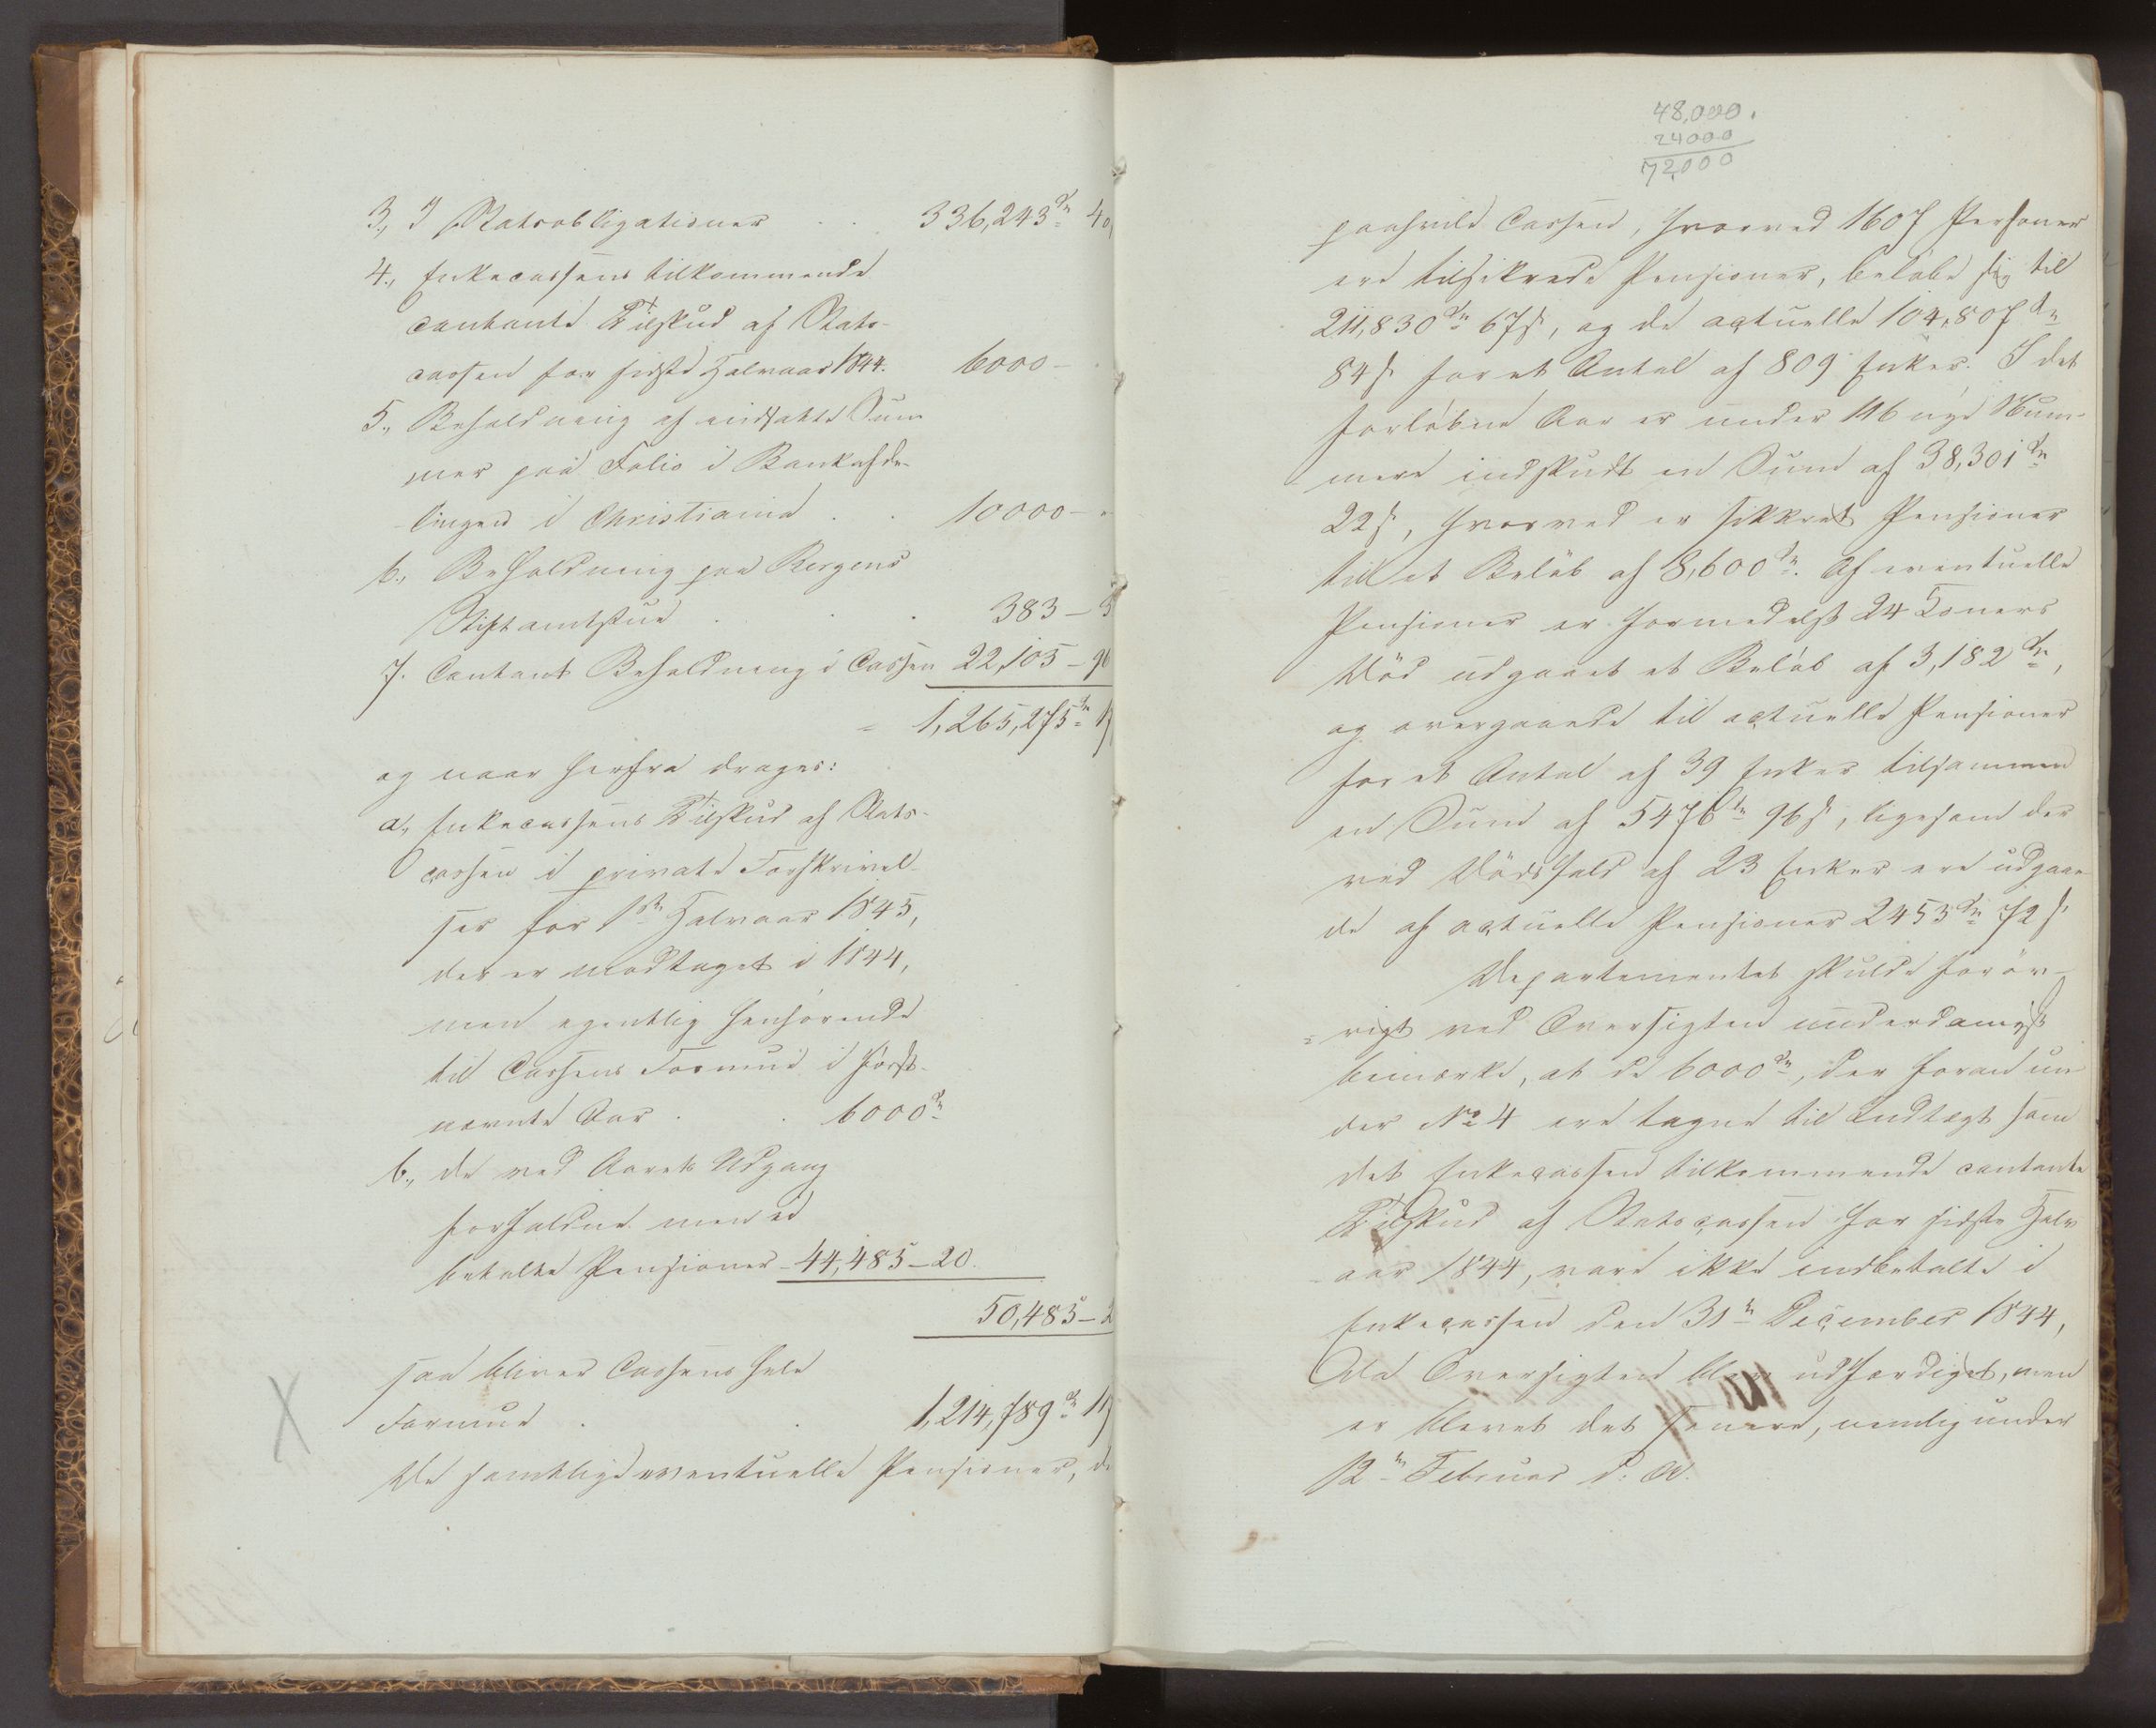 3., I Statsobligationer . . 336,243 Spd 40
4., Enkecassens tilkommende
contante Tilskud af Stats-
cassen for sidste Halvaar 1844. 6000 -
5., Beholdning af indsatte Sum
mer paa Folio i Bankafde-
lingen i Christiania . . 10000 -
6., Beholdning paa Bergens
Stiftamtstue . . . 383 - 5
7. Contant Beholdning i Cassen 22,105 - 96
= 1,265,275 Spd 1
og naar herfra drages:
a., Enkecassens Tilskud af Stats-
cassen i private Forskrivel-
ser for 1ste Halvaar 1845,
der er modtaget i 1844,
men egentlig henhørende
til Cassens Formue i først-
nævnte Aar . . 6000 Spd
b., de ved Aarets Udgang
forfaldne men ei
betalte Pensioner - 44,485 - 20.
50,485 - 2
saa bliver Cassens hele
Formue . . 1,214,789 Spd 11
De samtlige eventuelle Pensioner, de
48,000.
24000
72,000
paahvile Cassen, hvorved 1607 Personer
ere tilsikrede Pensioner, beløbe sig til
211,830 Spd 67 s, og de actuelle 104,807 Spd
84 s for et Antal af 809 Enker. I det
forløbne Aar er under 116 nye Num-
mere indskudt en Sum af 38,301 Spd
22 s, hvorved er sikkret Pensioner
til et Beløb af 8,600 Spd. Af eventuelle
Pensioner er formedelst 24 Koners
Død udgaaet et Beløb af 3,182 Spd,
og overgaaede til actuelle Pensioner
for et Antal af 39 Enker tilsammen
en Sum af 5476 Spd 96 s, ligesom der
ved Dødsfald af 23 Enker ere udgaae-
de af actuelle Pensioner 2453 Spd 72 s
Departementet skulde forøv-
rigt ved Oversigten underdanigst
bemærke, at de 6000 Spd, der foran un
der No 4 ere tagne til Indtægt som
det Enkecassen tilkommende contante
Tilskud af Statscassen for sidste Halv
aar 1844, vare ikke indbetalte i
Enkecassen den 31te December 1844,
da Oversigten blev udfærdiget, men
er blevet det senere, nemlig under
12te Februar d: A.